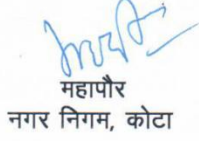 महापौर
नगर निगम, कोटा